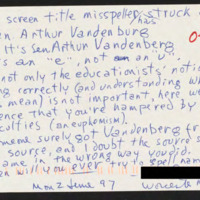 screen title misspelled, struck
his
en. Arthur Vandenburg
It's Sen Arthur Vandenberg
s an "e", not an "u".
not only the educationists' notic
ng correctly (and understanding wh
mean) is not important, here w
ence that you're hampered by
culties (a euphemism).
meone surely got Vandenberg fr
source, and I doubt the source s
ame in the wrong way you did.
will you ever try to spell nam
Mon 2 June 97